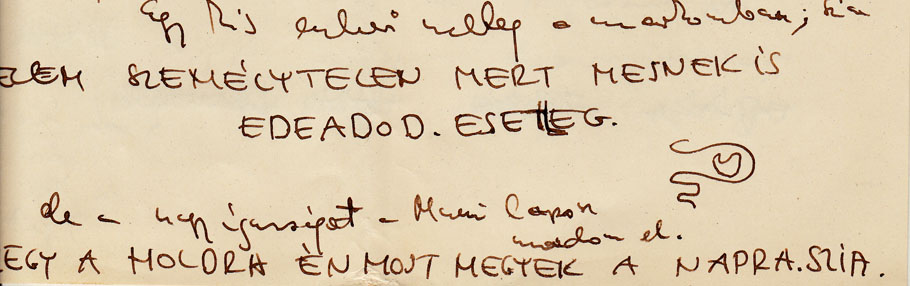 Egy kis emberi meleg a markomban; szia
SZEMÉLYTELEN MERT MESNEK IS
EDEADOD. ESETLEG.
de a nagy igazságot a Mami lapon
mondom el.
EGY A HOLDRA ÉN MOST MEGYEK A NAPRA. SZIA.